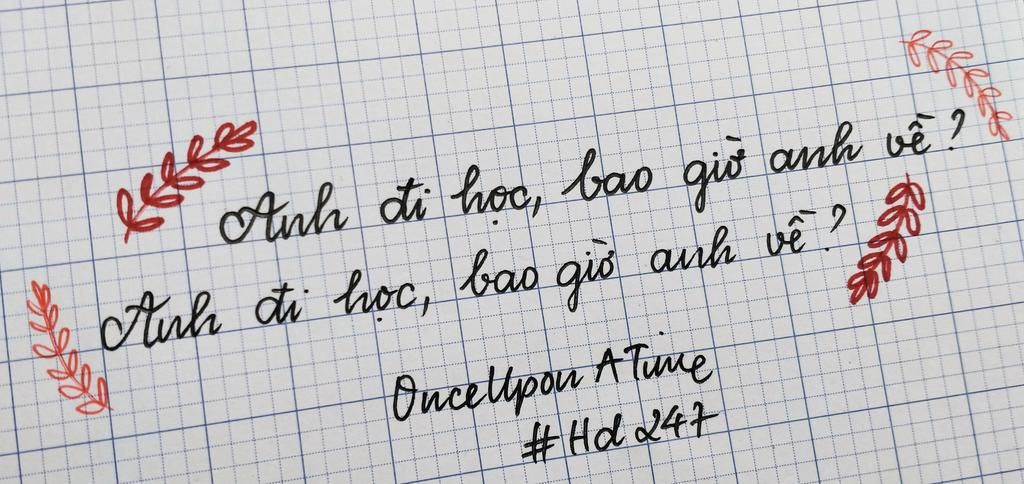 Anh đi học, bao giờ anh về?
Anh đi học, bao giờ anh về?
OnceUpon A Time
#Hd247